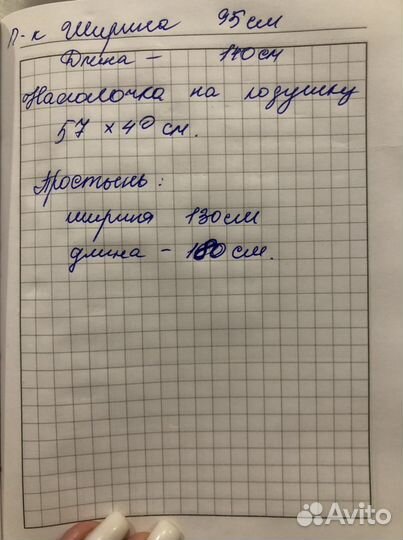 П-к Ширина 95 см
Длина - 140 см
Наволочка на подушку
57 х 40 см.
Простынь:
ширина 130 см
длина - 180 см.
Avito